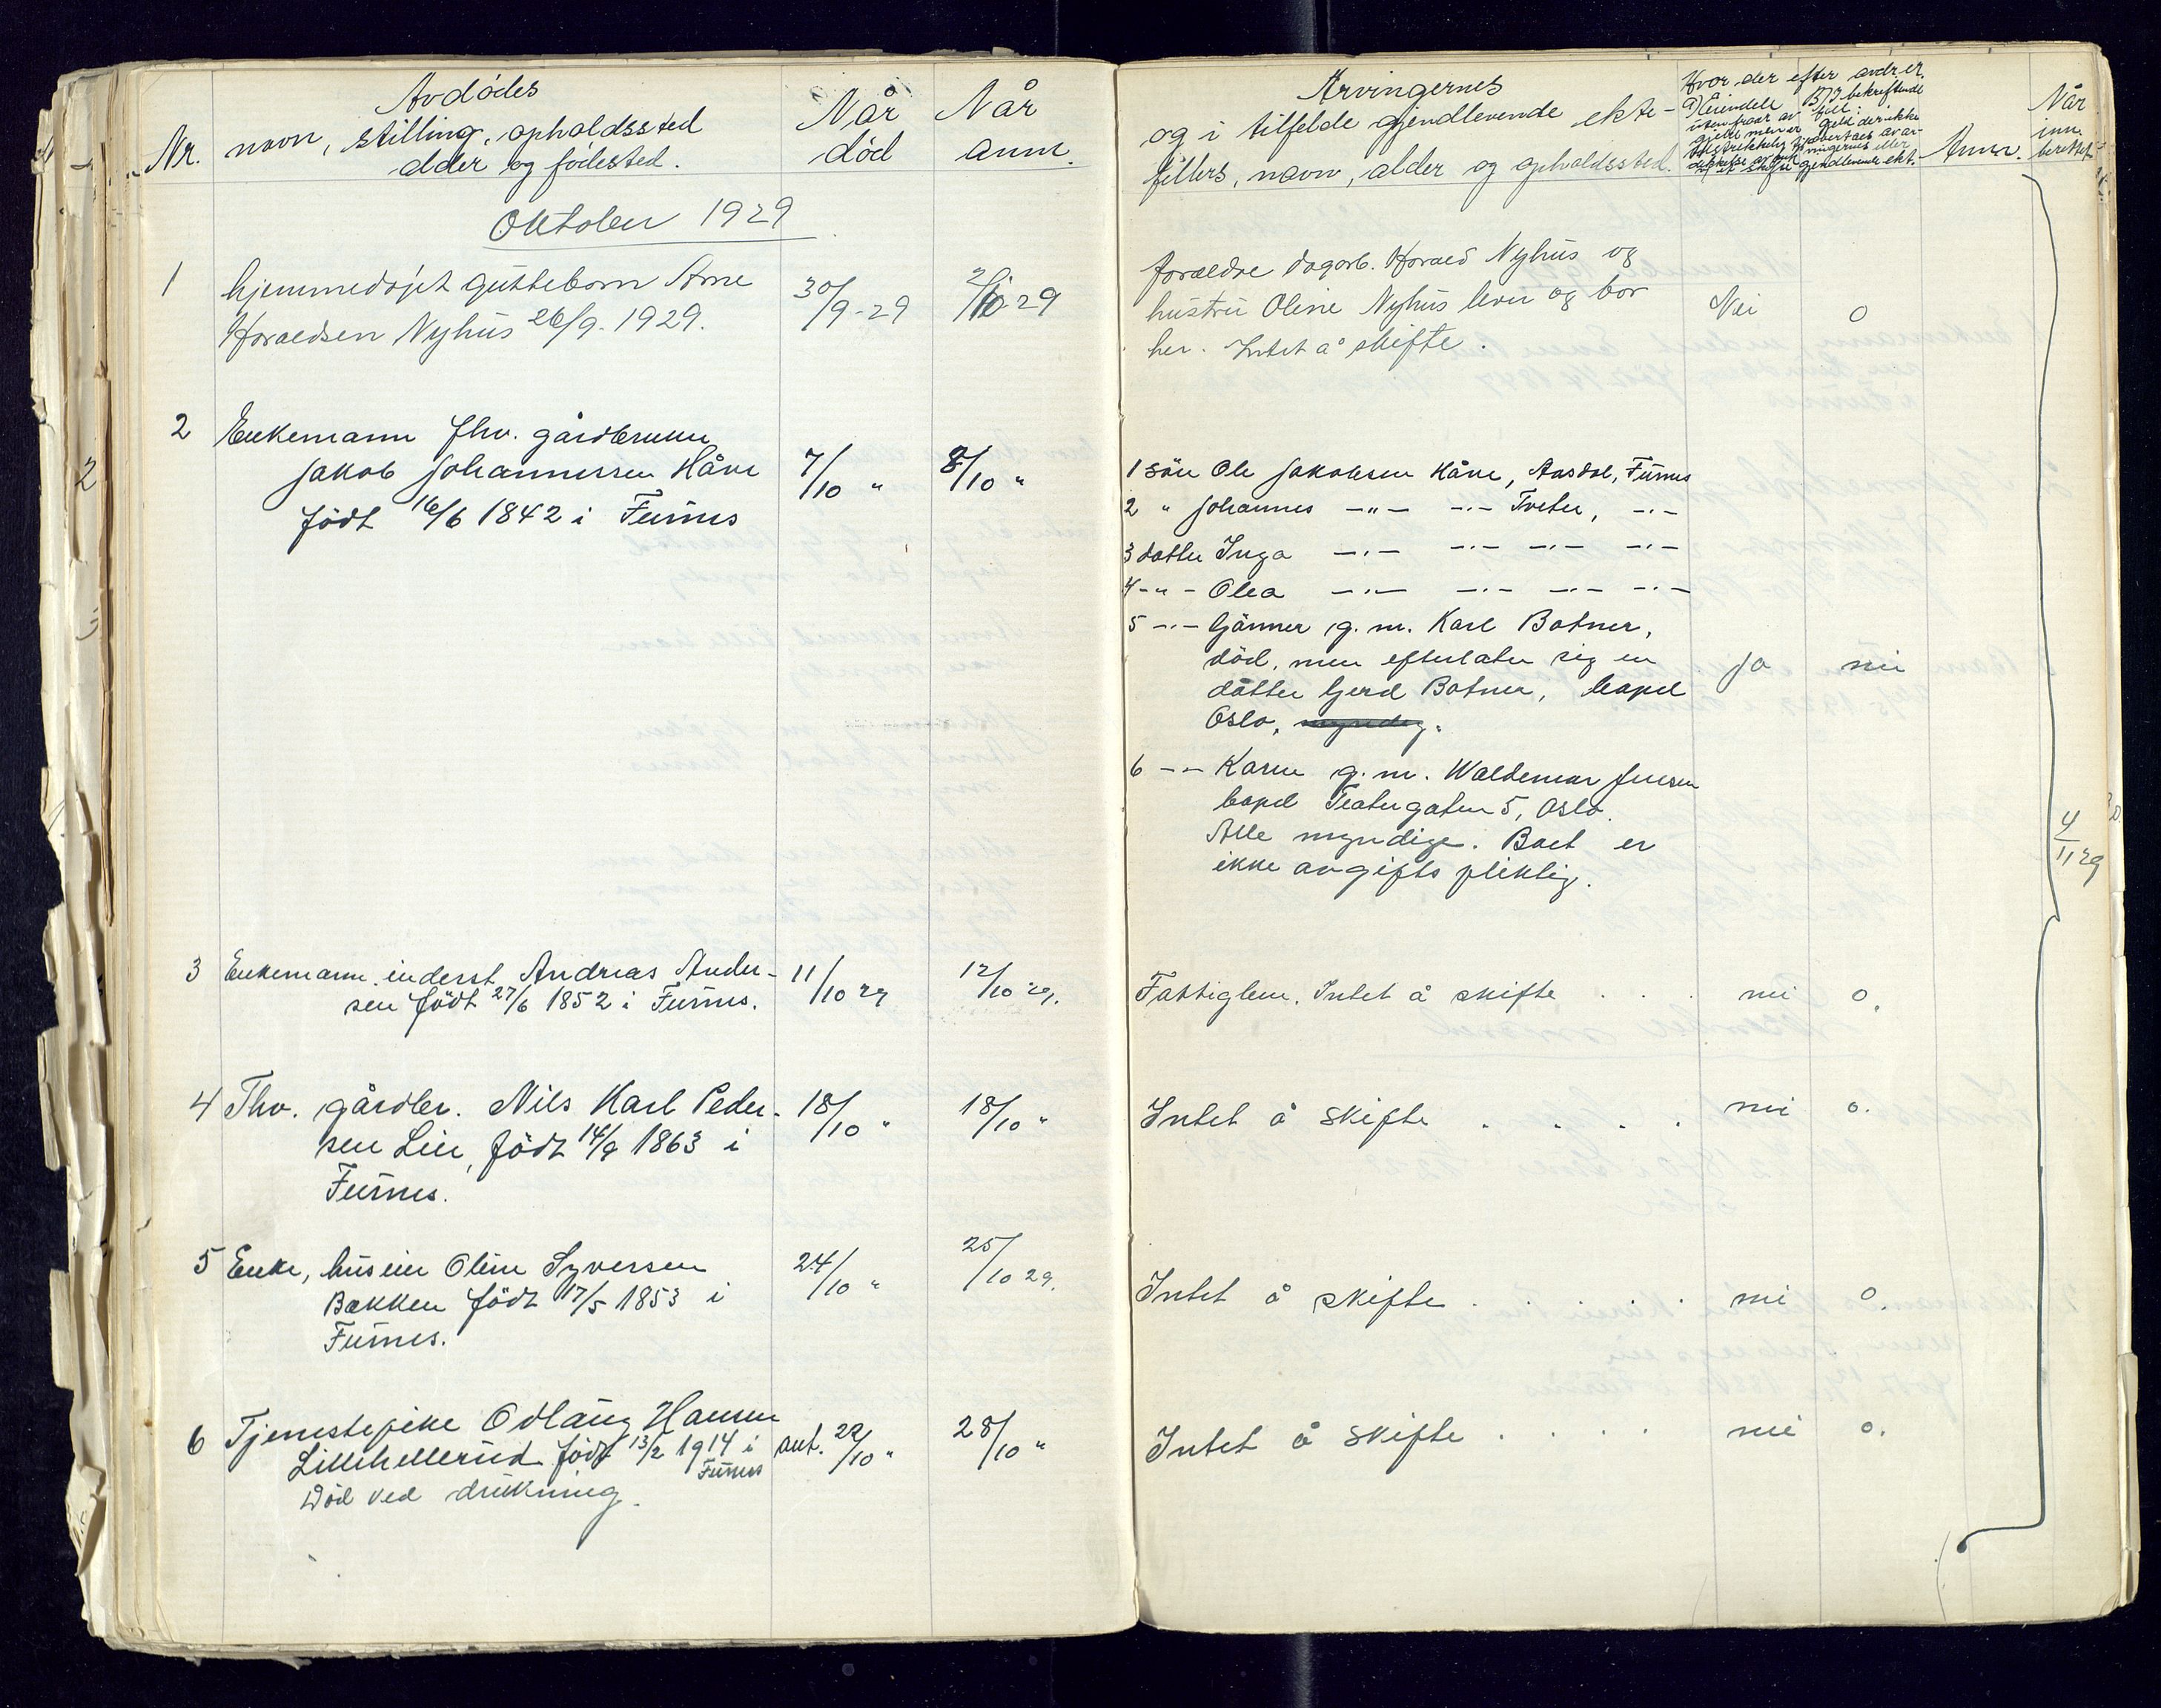 Avdödes
Nr. navn, stilling, opholdssted
alder og födested.
Når
död
Når
anm.
Oktober 1929
1 hjemmedöpt guttebarn Arne
Haraldsen Nyhus 26/9. 1929.
30/9-29
2/10-29
2 Enkemann fhv. gårdbruker
Jakob Johannessen Håve
födt 16/6 1842 i Furnes
7/10 "
8/10 "
3 Enkemann. inderst Andreas Ander-
sen födt 27/6 1852 i Furnes.
11/10 29
12/10 29.
4 Fhv. gårdbr. Nils Karl Peder-
sen Lie, födt 14/9 1863 i
Furnes.
18/10 "
18/10 "
5 Enke, huseier Oline Syversen
Bakken födt 17/5 1853 i
Furnes.
24/10 "
25/10 29.
6 Tjenestepike Odlaug Hansen
Lillehellerud födt 13/2 1914 i
Furnes
Död ved drukning.
ant. 22/10 "
28/10 "
Arvingernes
og i tilfelde gjenlevende ekte-
fellers, navn, alder og opholdssted.
Hvor der efter avdr er
Anm.
Når
inn-
berettet
foreldre dagarb. Harald Nyhus og
hustru Oline Nyhus lever og bor
her. Intet å skifte.
Nei 0
1 sön Ole Jakobsen Håve, Aasdal, Furnes
2 " Johannes -"- -"- Tveter, -"-
3 datter Inga -"- -"- -"- -"-
4 -"- Olea -"- -"- -"- -"-
5 -"- Gunner g. m. Karl Botner,
död, men efterlater sig en
datter Gerd Botner, bopel
Oslo, myndig.
ja nei
6 -"- Karen g. m. Waldemar Jensen
bopel Teatergaten 5, Oslo.
Alle myndige. Boet er
ikke avgifts pliktig.
4/11 29
Fattiglem. Intet å skifte . . . nei 0.
Intet å skifte . . . . nei 0.
Intet å skifte . . . . nei 0.
Intet å skifte . . . . nei 0.